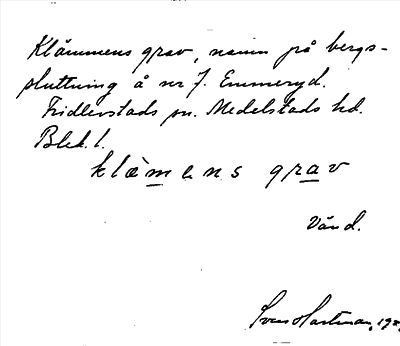 Klämmens grav, namn på bergs-
sluttning å nr 7. Emmeryd.
Fridlevstads sn. Medelstads hd.
Blek. l.
klämens grav
Vänd.
Sven Hartman, 19